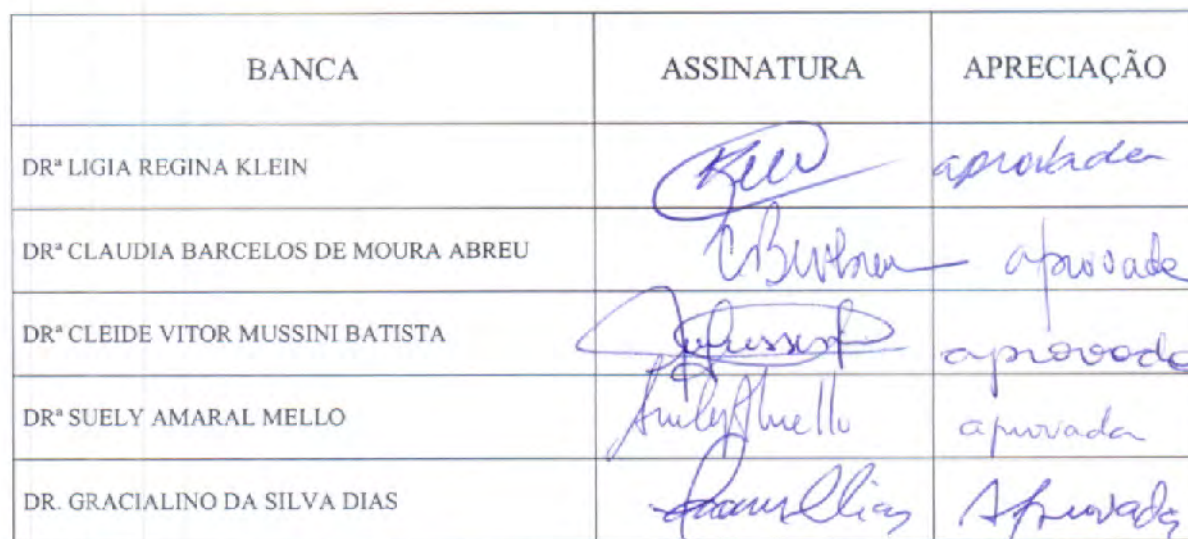 BANCA ASSINATURA APRECIAÇÃO
DRª LIGIA REGINA KLEIN aprovada
DRª CLAUDIA BARCELOS DE MOURA ABREU aprovada
DRª CLEIDE VITOR MUSSINI BATISTA aprovada
DRª SUELY AMARAL MELLO aprovada
DR. GRACIALINO DA SILVA DIAS Aprovada